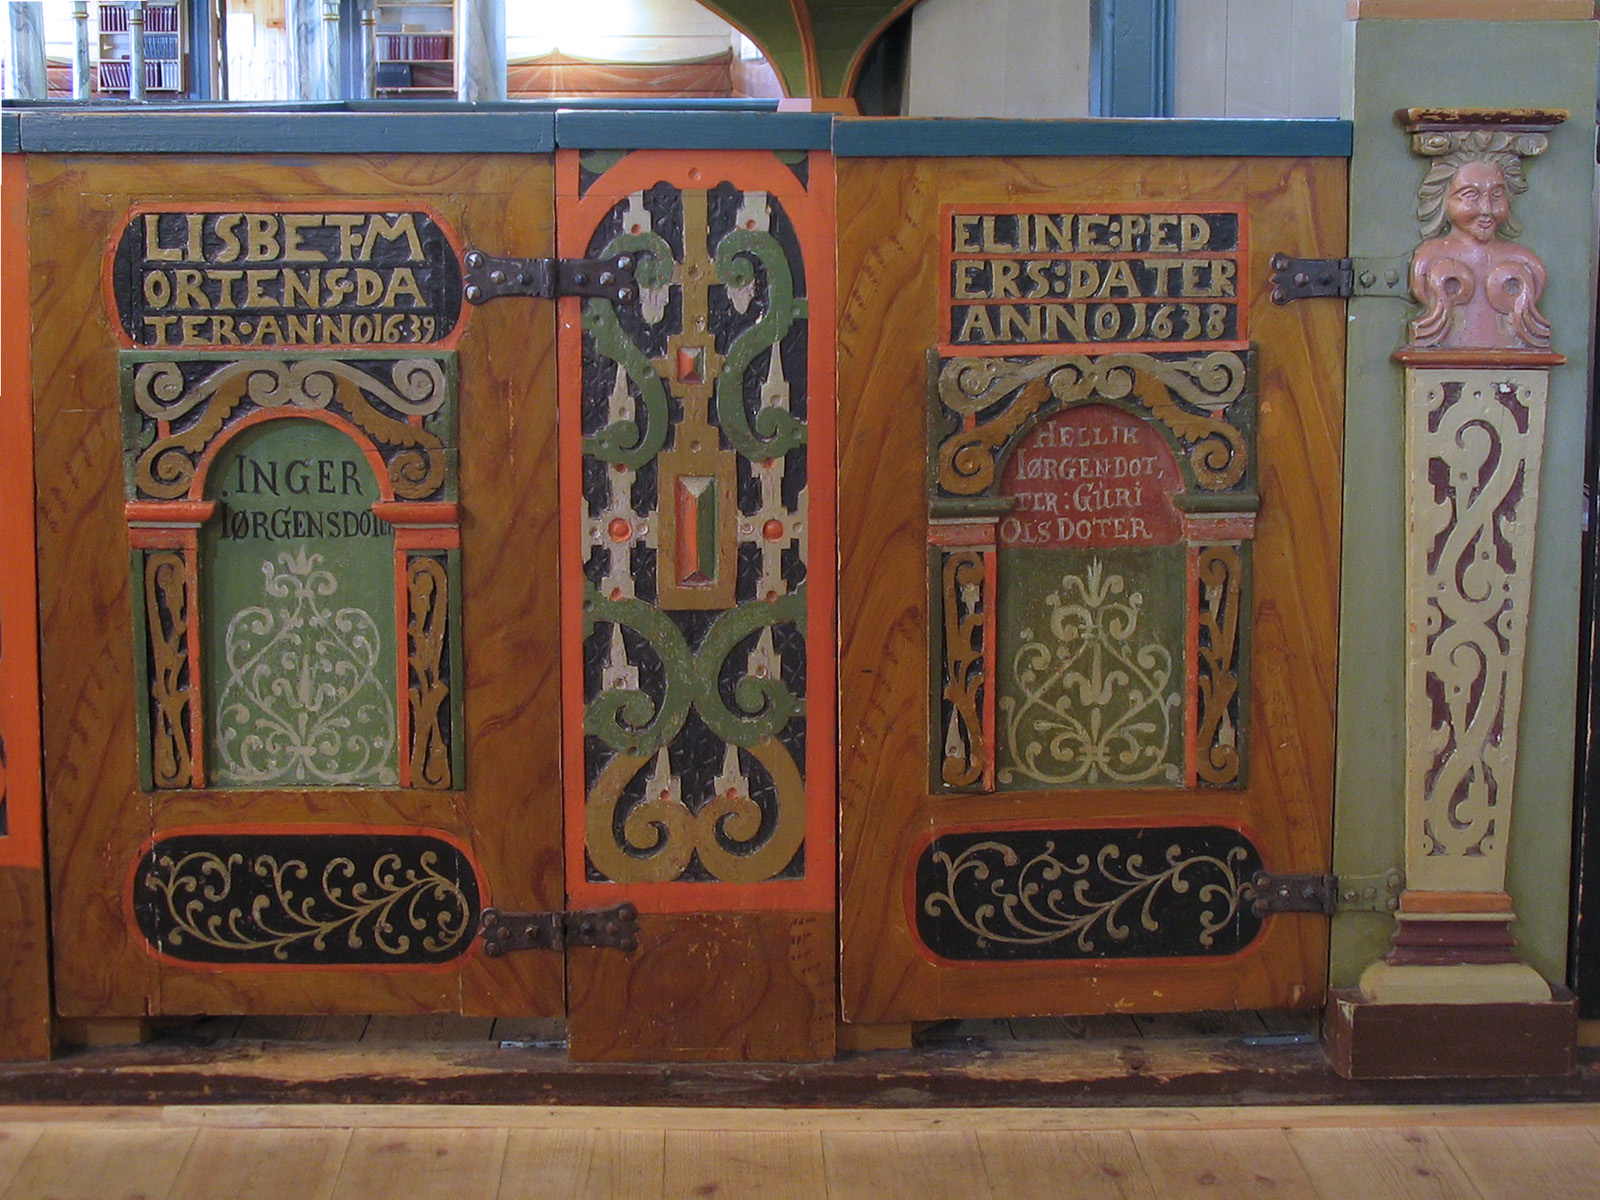 LISBET:M
ORTENS:DA
TER·ANNO16·39
INGER
IØRGENSDOTER
ELINE:PED
ERS:DATER
ANNO1638
HELLIK
IØRGENDOT,
TER:GÜRI
OLSDOTER